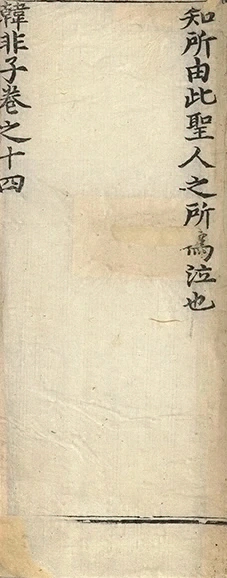 知所由此聖人之所爲泣也
韓非子卷之十四